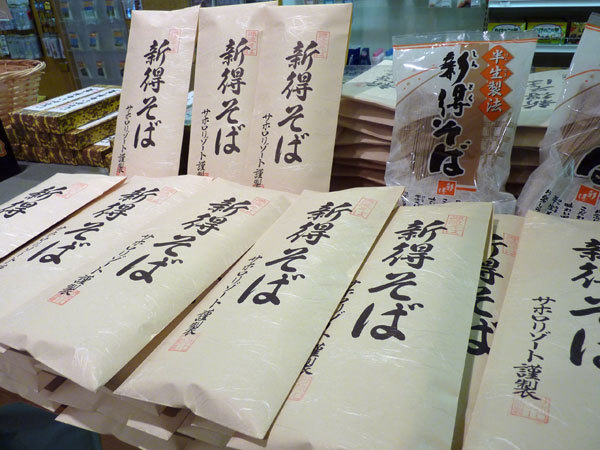 新得そば
サホロリゾート謹製
新得そば
サホロリゾート謹製
新得そば
サホロリゾート謹製
半生製法
しんとく
新得そば
新得そば
サホロリゾート謹製
新得そば
サホロリゾート謹製
新得そば
サホロリゾート謹製
新得そば
新得そば
新得そば
サホロリゾート謹製
そば